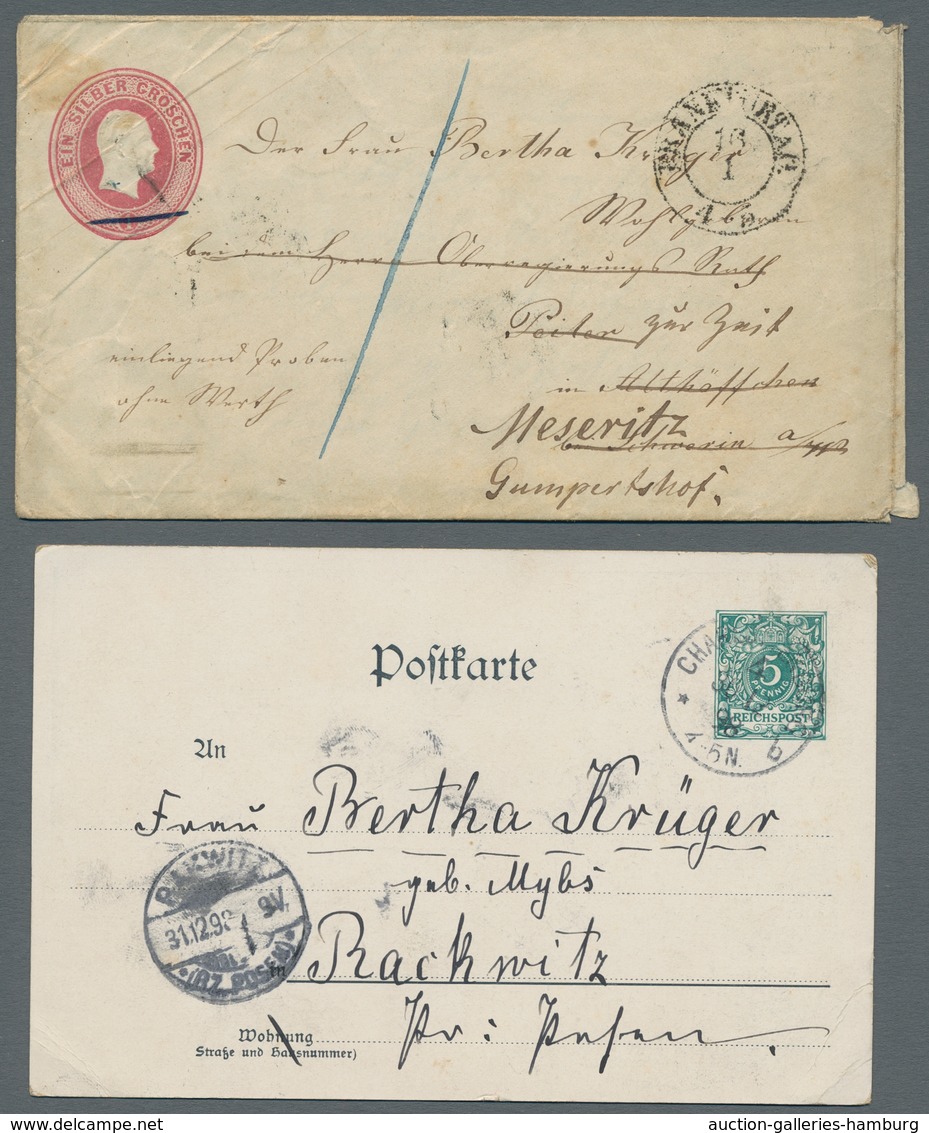 EIN SILBER GROSCHEN
FRANKFURT A.O.
16
1
4 5
Der Frau Bertha Krüger
Wohlgeboren
bei dem Herrn Oberregierungs Rath
zur Zeit
in Althöffchen
Meseritz
bei Schwerin a/W
Gumpertshof.
einliegend Proben
ohne Werth
Postkarte
5
PFENNIG
REICHSPOST
4-5N. b
An
Frau Bertha Krüger
geb. Mybs
RAKWITZ
31.12.98
9V.
*(BZ. POSEN)*
in Rackwitz
Pr: Posen.
Wohnung
Straße und Hausnummer)
auction-galleries-hamburg